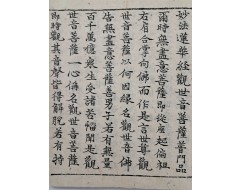 妙法蓮華經觀世音菩薩普門品
爾時無盡意菩薩即從座起偏袒
右肩合掌向佛而作是言世尊觀
世音菩薩以何因緣名觀世音佛
告無盡意菩薩善男子若有無量
百千萬億衆生受諸苦惱聞是觀
世音菩薩一心稱名觀世音菩薩
即時觀其音聲皆得解脫若有持